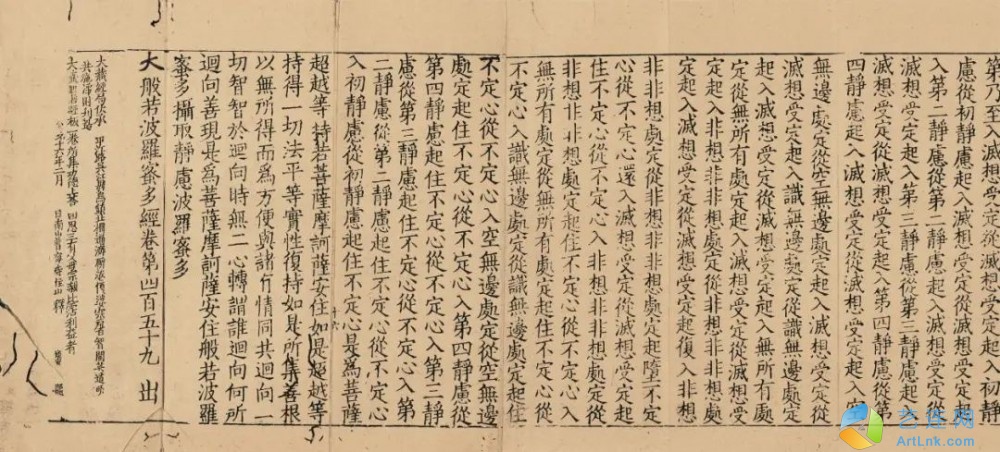 慮從初靜慮起入滅想受定從滅想受定起
入第二靜慮從第二靜慮起入滅想受定從
滅想受定起入第三靜慮從第三靜慮起入
滅想受定從滅想受定起入第四靜慮從第
四靜慮起入滅想受定從滅想受定起入空
無邊處定從空無邊處定起入滅想受定從
滅想受定起入識無邊處定從識無邊處定
起入滅想受定從滅想受定起入無所有處
定從無所有處定起入滅想受定從滅想受
定起入非想非非想處定從非想非非想處
定起入滅想受定從滅想受定起復入非想
非非想處定從非想非非想處定起墮不定
心從不定心還入滅想受定從滅想受定起
住不定心從不定心入非想非非想處定從
非想非非想處定起住不定心從不定心入
無所有處定從無所有處定起住不定心從
不定心入識無邊處定從識無邊處定起住
不定心從不定心入空無邊處定從空無邊
處定起住不定心從不定心入第四靜慮從
第四靜慮起住不定心從不定心入第三靜
慮從第三靜慮起住不定心從不定心入第
二靜慮從第二靜慮起住不定心從不定心
入初靜慮從初靜慮起住不定心是爲菩薩
超越等持若菩薩摩訶薩安住如是超越等
持得一切法平等實性復持如是所集善根
以無所得而爲方便與諸有情同共迴向一
切智智於迴向時無二心轉謂誰迴向何所
迴向善現是爲菩薩摩訶薩安住般若波羅
蜜多攝取靜慮波羅蜜多
大般若波羅蜜多經卷第四百五十九 出
艺连网
ArtLnk.com